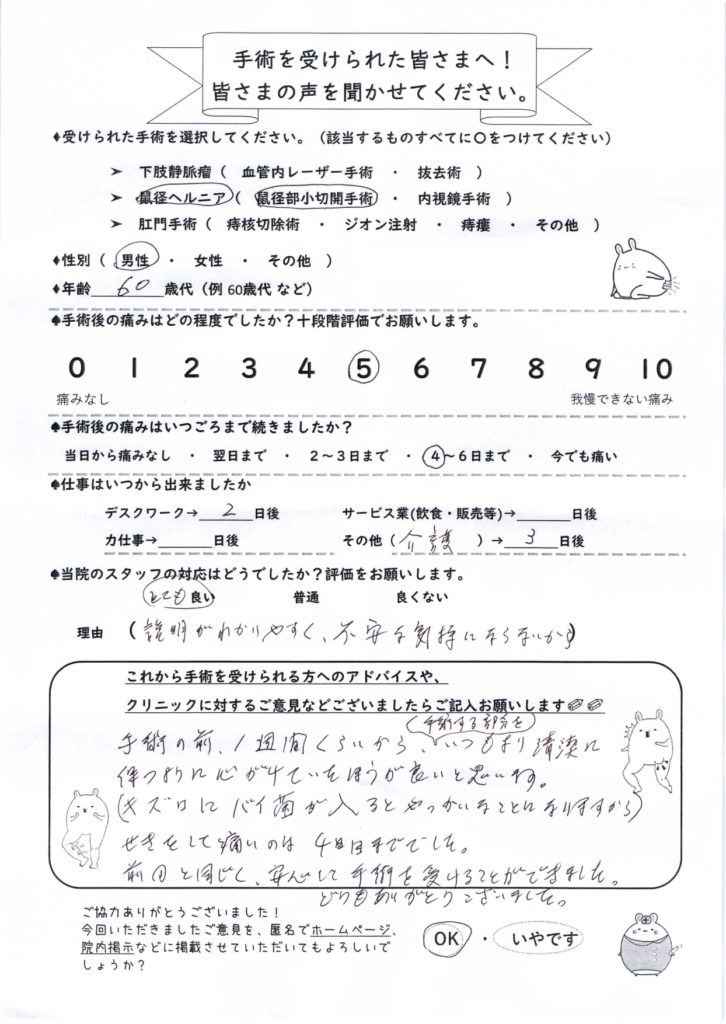 手術を受けられた皆さまへ！
皆さまの声を聞かせてください。
♦受けられた手術を選択してください。（該当するものすべてに〇をつけてください）
➤ 下肢静脈瘤（ 血管内レーザー手術 ・ 抜去術 ）
➤ 鼠径ヘルニア（ 鼠径部小切開手術 ・ 内視鏡手術 ）
➤ 肛門手術（ 痔核切除術 ・ ジオン注射 ・ 痔瘻 ・ その他 ）
♦性別（ 男性 ・ 女性 ・ その他 ）
♦年齢 60 歳代（例 60歳代 など）
♠手術後の痛みはどの程度でしたか？十段階評価でお願いします。
0 1 2 3 4 5 6 7 8 9 10
痛みなし 我慢できない痛み
♠手術後の痛みはいつごろまで続きましたか？
当日から痛みなし ・ 翌日まで ・ 2～3日まで ・ 4～6日まで ・ 今でも痛い
♠仕事はいつから出来ましたか
デスクワーク→ 2 日後 サービス業(飲食・販売等)→ 日後
力仕事→ 日後 その他（ 介護 ）→ 3 日後
♠当院のスタッフの対応はどうでしたか？評価をお願いします。
とても良い 普通 良くない
理由 （説明がわかりやすく、不安な気持にならないから）
これから手術を受けられる方へのアドバイスや、
クリニックに対するご意見などございましたらご記入お願いします
手術する部分を
手術の前、1週間くらいから、いつもより清潔に
保つように心がけていたほうが良いと思いますね。
（キズ口にバイ菌が入るとやっかいなことになりますから）
せきをして痛いのは 4日目まででした。
前回と同じく、安心して手術を受けることができました。
どうもありがとうございました。
ご協力ありがとうございました！
今回いただきましたご意見を、匿名でホームページ、
院内掲示などに掲載させていただいてもよろしいで
しょうか？
OK ・ いやです